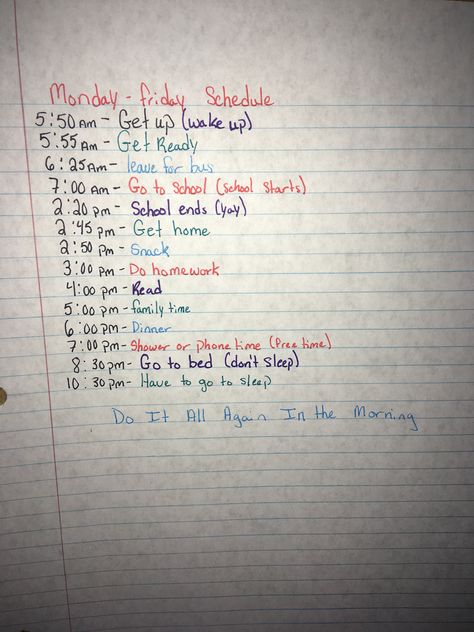 Monday - friday Schedule
5:50 Am - Get up (wake up)
5:55 Am - Get Ready
6:25 Am - leave for bus
7:00 Am - Go to School (School Starts)
2:20 pm - School ends (yay)
2:45 pm - Get home
2:50 pm - Snack
3:00 pm - Do homework
4:00 pm - Read
5:00 pm - family time
6:00 pm - Dinner
7:00 pm - Shower or phone time (free time)
8:30 pm - Go to bed (don't sleep)
10:30 pm - Have to go to sleep
Do It All Again In the Morning